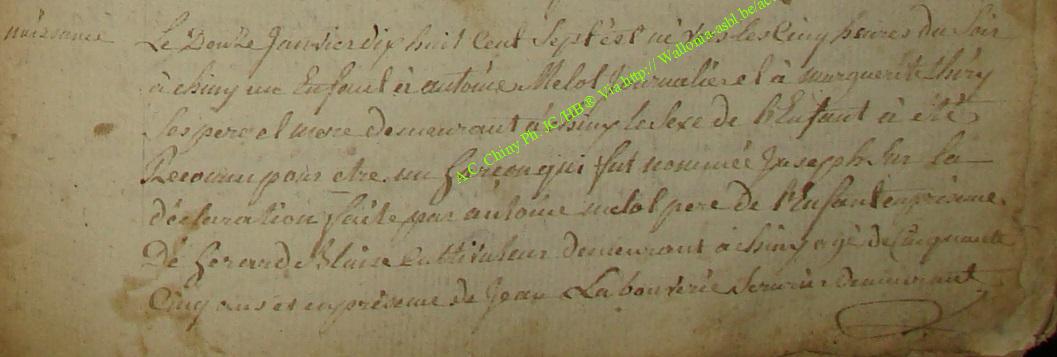 naissance
Le Douze Janvier dix huit Cent Sept est né vers les Cinq heures du Soir
à chiny un Enfant à antoine Melot Journalier et à marguerite thiry
Ses pere et mere demeurant à chiny le Sexe de l'Enfant à été
Reconnu pour etre un Garçon qui fut nommée Joseph Sur la
déclaration faite par antoine melot pere de l'Enfant en présence
De Gerard Blaise Cultivateur demeurant à chiny agé de Cinquante
Cinq ans et en présence de Jean Laboûverie Serurier demeurant
A.C. Chiny Ph. JC/HB® Via http:// Wallonia-asbl.be/ac